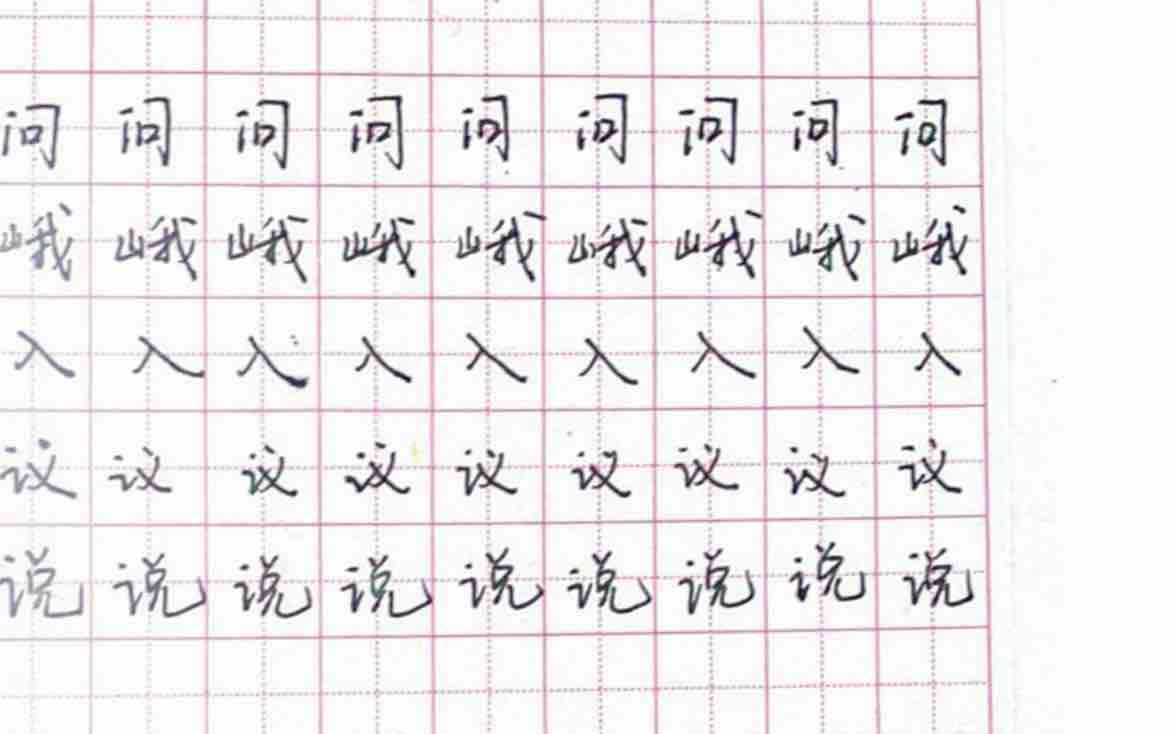 问 问 问 问 问 问 问 问 问
峨 峨 峨 峨 峨 峨 峨 峨 峨
入 入 入 入 入 入 入 入 入
议 议 议 议 议 议 议 议 议
说 说 说 说 说 说 说 说 说